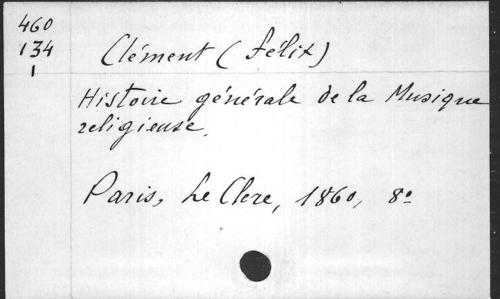 460
134
1
Clément (Félix)
Histoire générale de la Musique
religieuse.
Paris, Le Clere, 1860, 8º